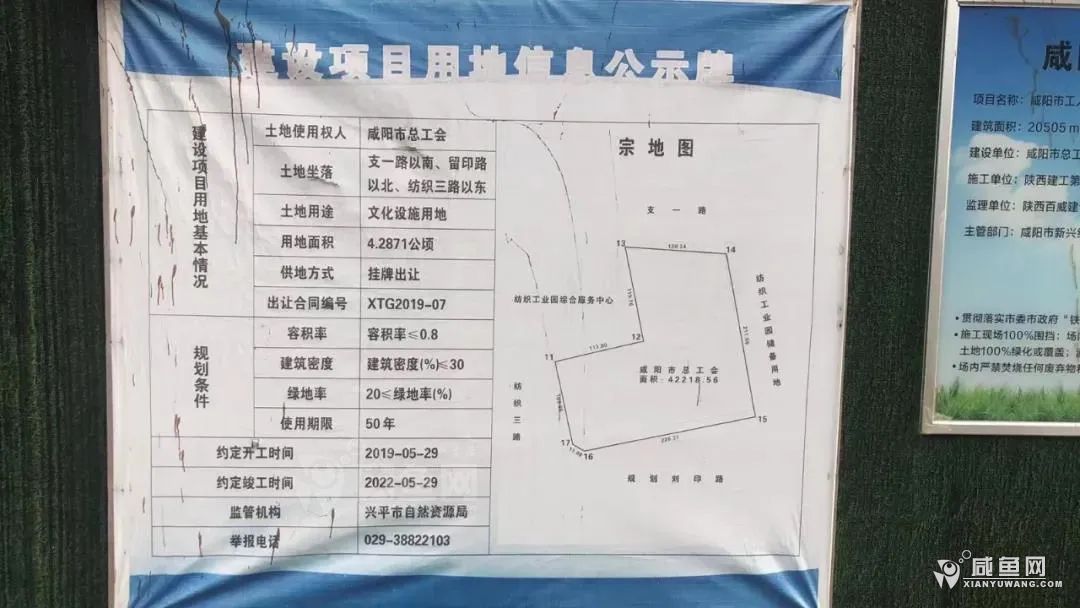 建设项目用地信息公示牌
建设项目用地基本情况
土地使用权人 咸阳市总工会
土地坐落 支一路以南、留印路
以北、纺织三路以东
土地用途 文化设施用地
用地面积 4.2871公顷
供地方式 挂牌出让
出让合同编号 XTG2019-07
规划条件
容积率 容积率≤0.8
建筑密度 建筑密度(%)≤30
绿地率 20≤绿地率(%)
使用期限 50年
约定开工时间 2019-05-29
约定竣工时间 2022-05-29
监管机构 兴平市自然资源局
举报电话 029-38822103
宗地图
支一路
13
14
纺织工业园储备用地
纺织工业园综合服务中心
12
113.80
11
咸阳市总工会
面积:42218.56
纺织三路
15
17
16
规划刘印路
咸
项目名称：咸阳市工人
建筑面积：20505
建设单位：咸阳市总工
施工单位：陕西建工第
监理单位：陕西百威建
主管部门：咸阳市新兴纺
•贯彻落实市委市政府“铁
•施工现场100%围挡；场
土地100%绿化或覆盖；
•场内严禁焚烧任何废弃物
咸鱼网
XIANYUWANG.COM